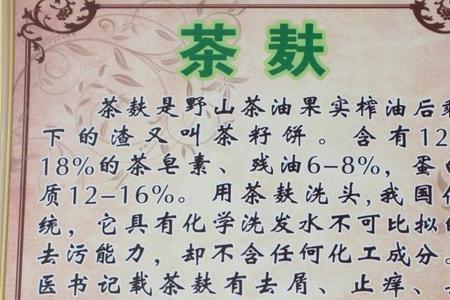 茶麸
茶麸是野山茶油果实榨油后
下的渣又叫茶籽饼。含有12
18%的茶皂素、残油6-8%，蛋
质12-16%。用茶麸洗头,我国
统，它具有化学洗发水不可比拟的
去污能力，却不含任何化工成分。
医书记载茶麸有去屑、止痒、